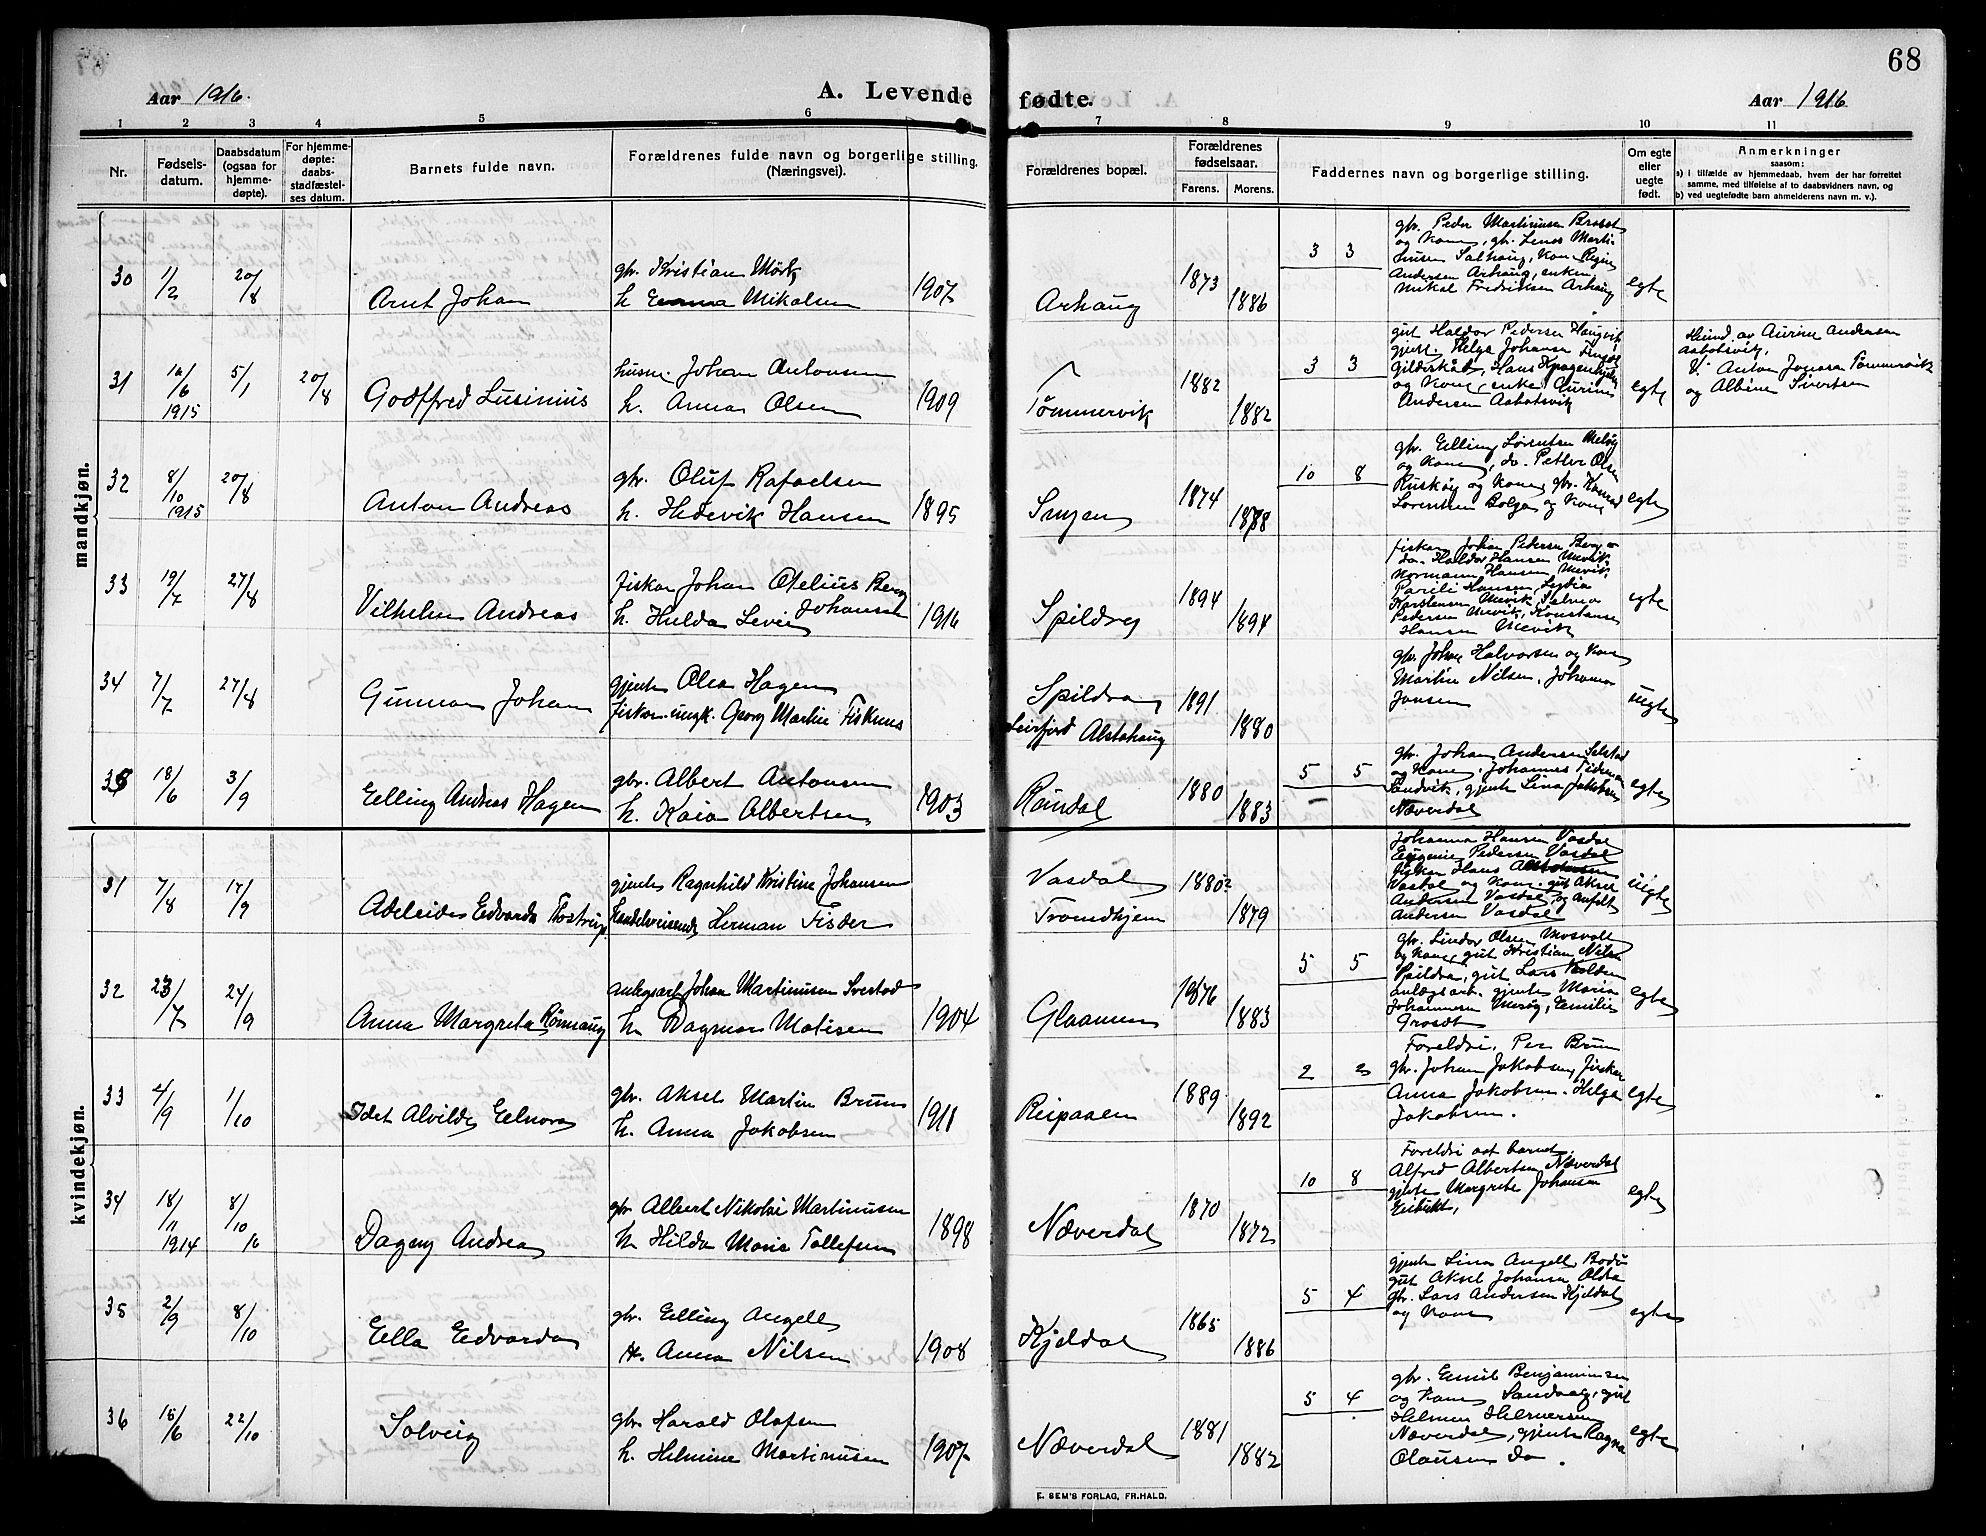 68
Aar 1916.
A. Levende fødte.
Aar 1916
1 2 3 4 5 6 7 8 9 10 11
Nr.
Fødsels-
datum.
Daabsdatum
(ogsaa for
hjemme-
døpte).
For hjemme-
døpte:
daabs-
stadfæstel-
ses datum.
Barnets fulde navn.
Forældrenes fulde navn og borgerlige stilling.
(Næringsvei).
Forældrenes bopæl.
Forældrenes
fødselsaar.
Farens. Morens.
Faddernes navn og borgerlige stilling.
Om egte
eller
uegte
født.
Anmerkninger
saasom:
a) i tilfælde av hjemmedaab, hvem der har forrettet
samme, med tilføielse af to daabsvidners navn, og
b) ved uegtefødte barn anmelderens navn m. v.).
mandkjøn.
30 1/2 20/8 Arnt Johan
gbr. Kristian Mørk
h. Emma Mikalsen 1907
Arhaug 1873 1886
3 3
gbr. Peder Martinusen
og Kone, gb. Martin
Andersen Arhaug, enkem.
Mikal Fredriksen Arhaug
egte
31 16/6 1915 5/1 20/8 Godtfred Lusinius
husm. Johan Antonsen
h. Anna Olsen 1909
Tømmervik 1882 1882
3 3
gut Haldor Pedersen Haugvik
gjente Helga Johansen
Gildeskål, Hans
og Kone, enke Aurine
Andersen Aabotsvik
egte
av Aurine Andersen
Aabotsvik.
V. Anton Jonsen Tømmervik
og Albine Sivertsen
32 8/10 1915 20/8 Anton Andreas
gbr. Oluf Rafaelsen
h. Hedevik Hansen 1895
1874 1878
10 8
gbr. Elling Lorentsen Meløy
og Kone, do. Petter Olsen
og Kone, gbr. Konrad
Lorentsen Bolga og Kone
egte
33 19/7 27/8 Vilhelm Andreas
fisker Johan Otelius Berg
h. Hulda Johansen 1916
Spildra 1894 1894
fisker Johan Pedersen Berg
do. Haldor Hansen
Normann Hansen
Hansen, Lydia
Karstensen
Pedersen Konstanse
Hansen
egte
34 7/7 27/8 Gunnar Johan
gjente Olea Hagen
fisker ungk. Georg Martin Fisknes
Spildra
Leirfjord Alstahaug
1891 1880
gbr. Johan Halvorsen og Kone
Martin Nilsen, Johanna
Jansen
uegte
35 18/6 3/9 Elling Andreas Hagen
gbr. Albert Antonsen
h. Kaia Albertsen 1903
Røindal 1880 1883
5 5
gbr. Johan Andersen Selstad
og Kone, Johannes
Sandvik, gjente Lina Jakobsen
Næverdal
egte
kvindekjøn.
31 7/8 17/9 Adeleide Edvarda Thostrup
gjente Ragnhild Kristine Johansen
Handelsreisende Herman Fisder
Vasdal
Trondhjem
1879
Johanna Hansen Vasdal
Eugenie Pedersen Vasdal
fisker Hans
Vasdal og Kone, gut Aksel
Andersen Vasdal, og
Andersen Vasdal
uegte
32 23/7 24/9 Anna Margreta Rønnaug
anlegsarb. Johan Martinusen
h. Dagmar Matisen 1904
Glaamen 1876 1883
5 5
gbr. Lindor Olsen Mosvold
og Kone, gut Kristian Nilsen
Spildra, gut Lars
anlægsarb. gjente Maria
Johannesen Emilie
egte
33 4/9 1/10 Odet Alvilde Elnora
gbr. Aksel Martin Bruun
h. Anna Jakobsen 1911
Reipaaen 1889 1892
2 2
Foreldre, Per Bruun
gbr. Johan Jakobsen, fisker
Anna Jakobsen, Helga
Jakobsen.
egte
34 18/11 1914 8/10 16 Dagny Andrea
gbr. Albert Nikolai Martinusen
h. Hilda Marie Tollefsen 1898
Næverdal 1870 1872
10 8
Foreldre aat barnet,
Alfred Albertsen Næverdal
gjente Margrete Johansen
egte
35 2/9 8/10 Ella Edvarda
gbr. Elling Angell
H. Anna Nilsen 1908
Kjeldal 1865 1886
5 4
gjente Lina Angell, Bodø
gut Aksel Johansen
gbr. Lars Andersen Kjeldal
og Kone
egte
36 15/6 22/10 Solveig
gbr. Harald Olafsen
h. Helmine Martinusen 1907
Næverdal 1881 1882
5 4
gbr. Emil Benjaminsen
og Kone Sandvaag, gut
Helmer Helmersen
Næverdal, gjente Ragna
Olausen Do.
egte
E. SEM'S FORLAG, FR.HALD.